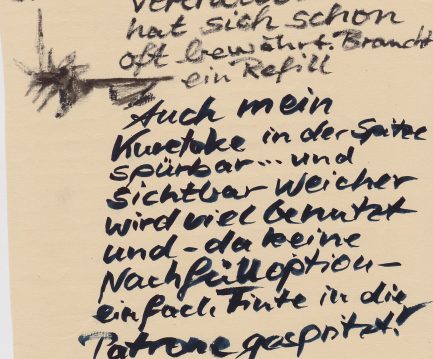 hat sich schon
oft bewährt. Braucht
ein Refill
Auch mein
Kuretake in der Spitze
spürbar... und
sichtbar weicher
wird viel benutzt
und - da keine
Nachfülloption -
einfach Tinte in die
Patrone gespritzt!